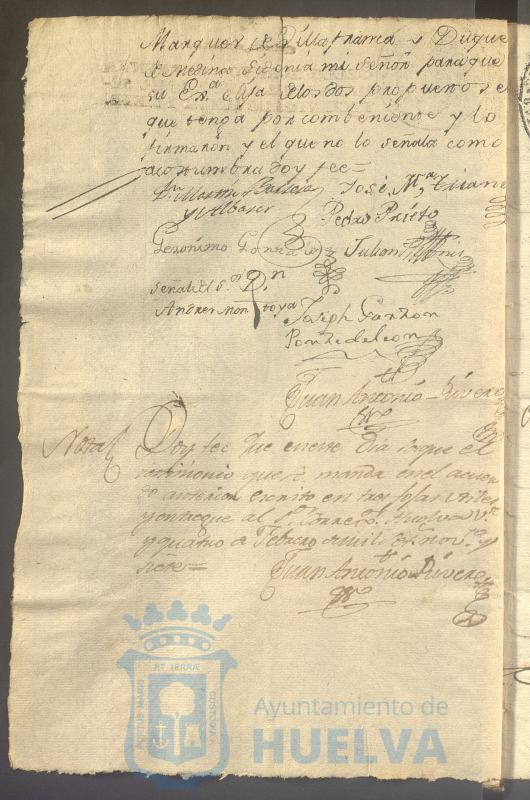 Marques de Villafranca y Duque
de Medina Sidonia mi señor para que
su Exª elija delos dos propuestos el
que tenga por combeniente y lo
firmaron y el que no lo señala como
acostumbra doy fee=
Dn Martin
José Mª Tirado
Pedro Prieto
Geronimo Gonzalez
Julian
señal del Sor Dn
Andres Montoya
Joseph Garzon
Ponze de Leon
Juan Antonio Rivero
Essno
Nota
Doy fee que en este dia saque el
testimonio que se manda en el acuer
do anterior escrito en tres fojas utiles
y entregue al Sr Correxor Huelva Vte
y quatro de Febrero de mil setenov.ta y
siete=
Juan Antonio Rivero
Essno
ET TERRÆ
PORTUS MARIS
CUSTODIA
Ayuntamiento de
HUELVA